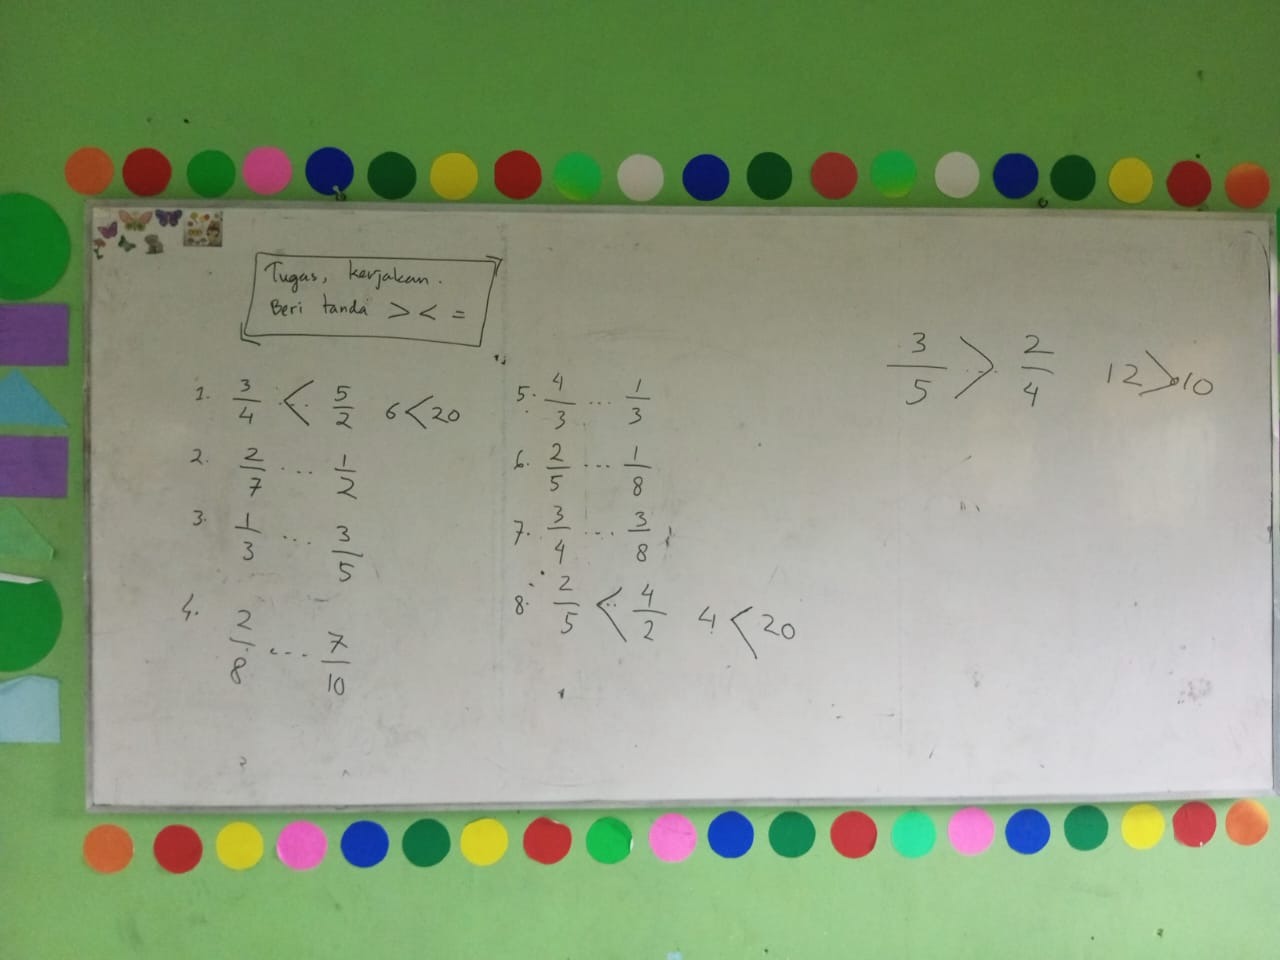 Tugas, kerjakan.
Beri tanda > < =
1. 3/4 < 5/2 6 < 20
2. 2/7 ... 1/2
3. 1/3 ... 3/5
4. 2/8 ... 7/10
5. 4/3 ... 1/3
6. 2/5 ... 1/8
7. 3/4 ... 3/8
8. 2/5 < 4/2 4 < 20
3/5 > 2/4 12 > 10